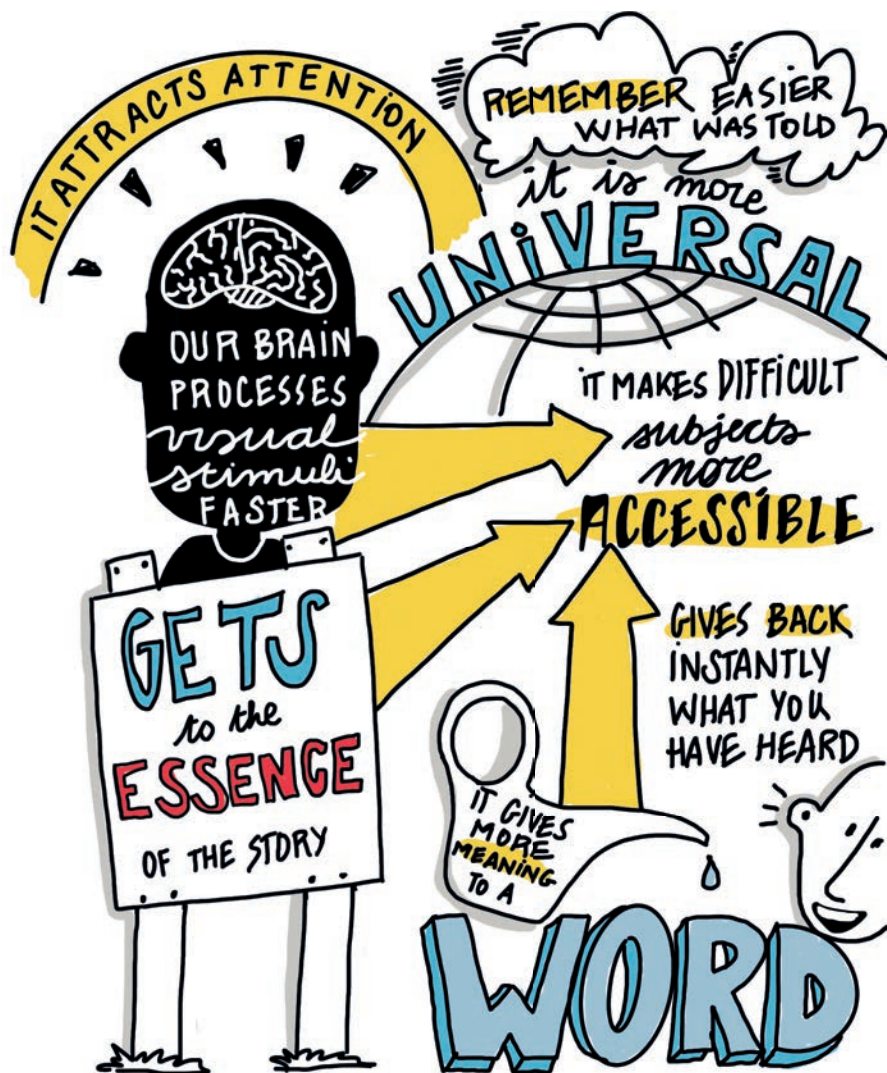 IT ATTRACTS ATTENTION
REMEMBER EASIER
WHAT WAS TOLD
it is more
UNIVERSAL
OUR BRAIN
PROCESSES
visual
stimuli
FASTER
IT MAKES DIFFICULT
subjects
more
ACCESSIBLE
GETS
to the
ESSENCE
OF THE STORY
GIVES BACK
INSTANTLY
WHAT YOU
HAVE HEARD
IT GIVES
MORE
MEANING
TO A
WORD